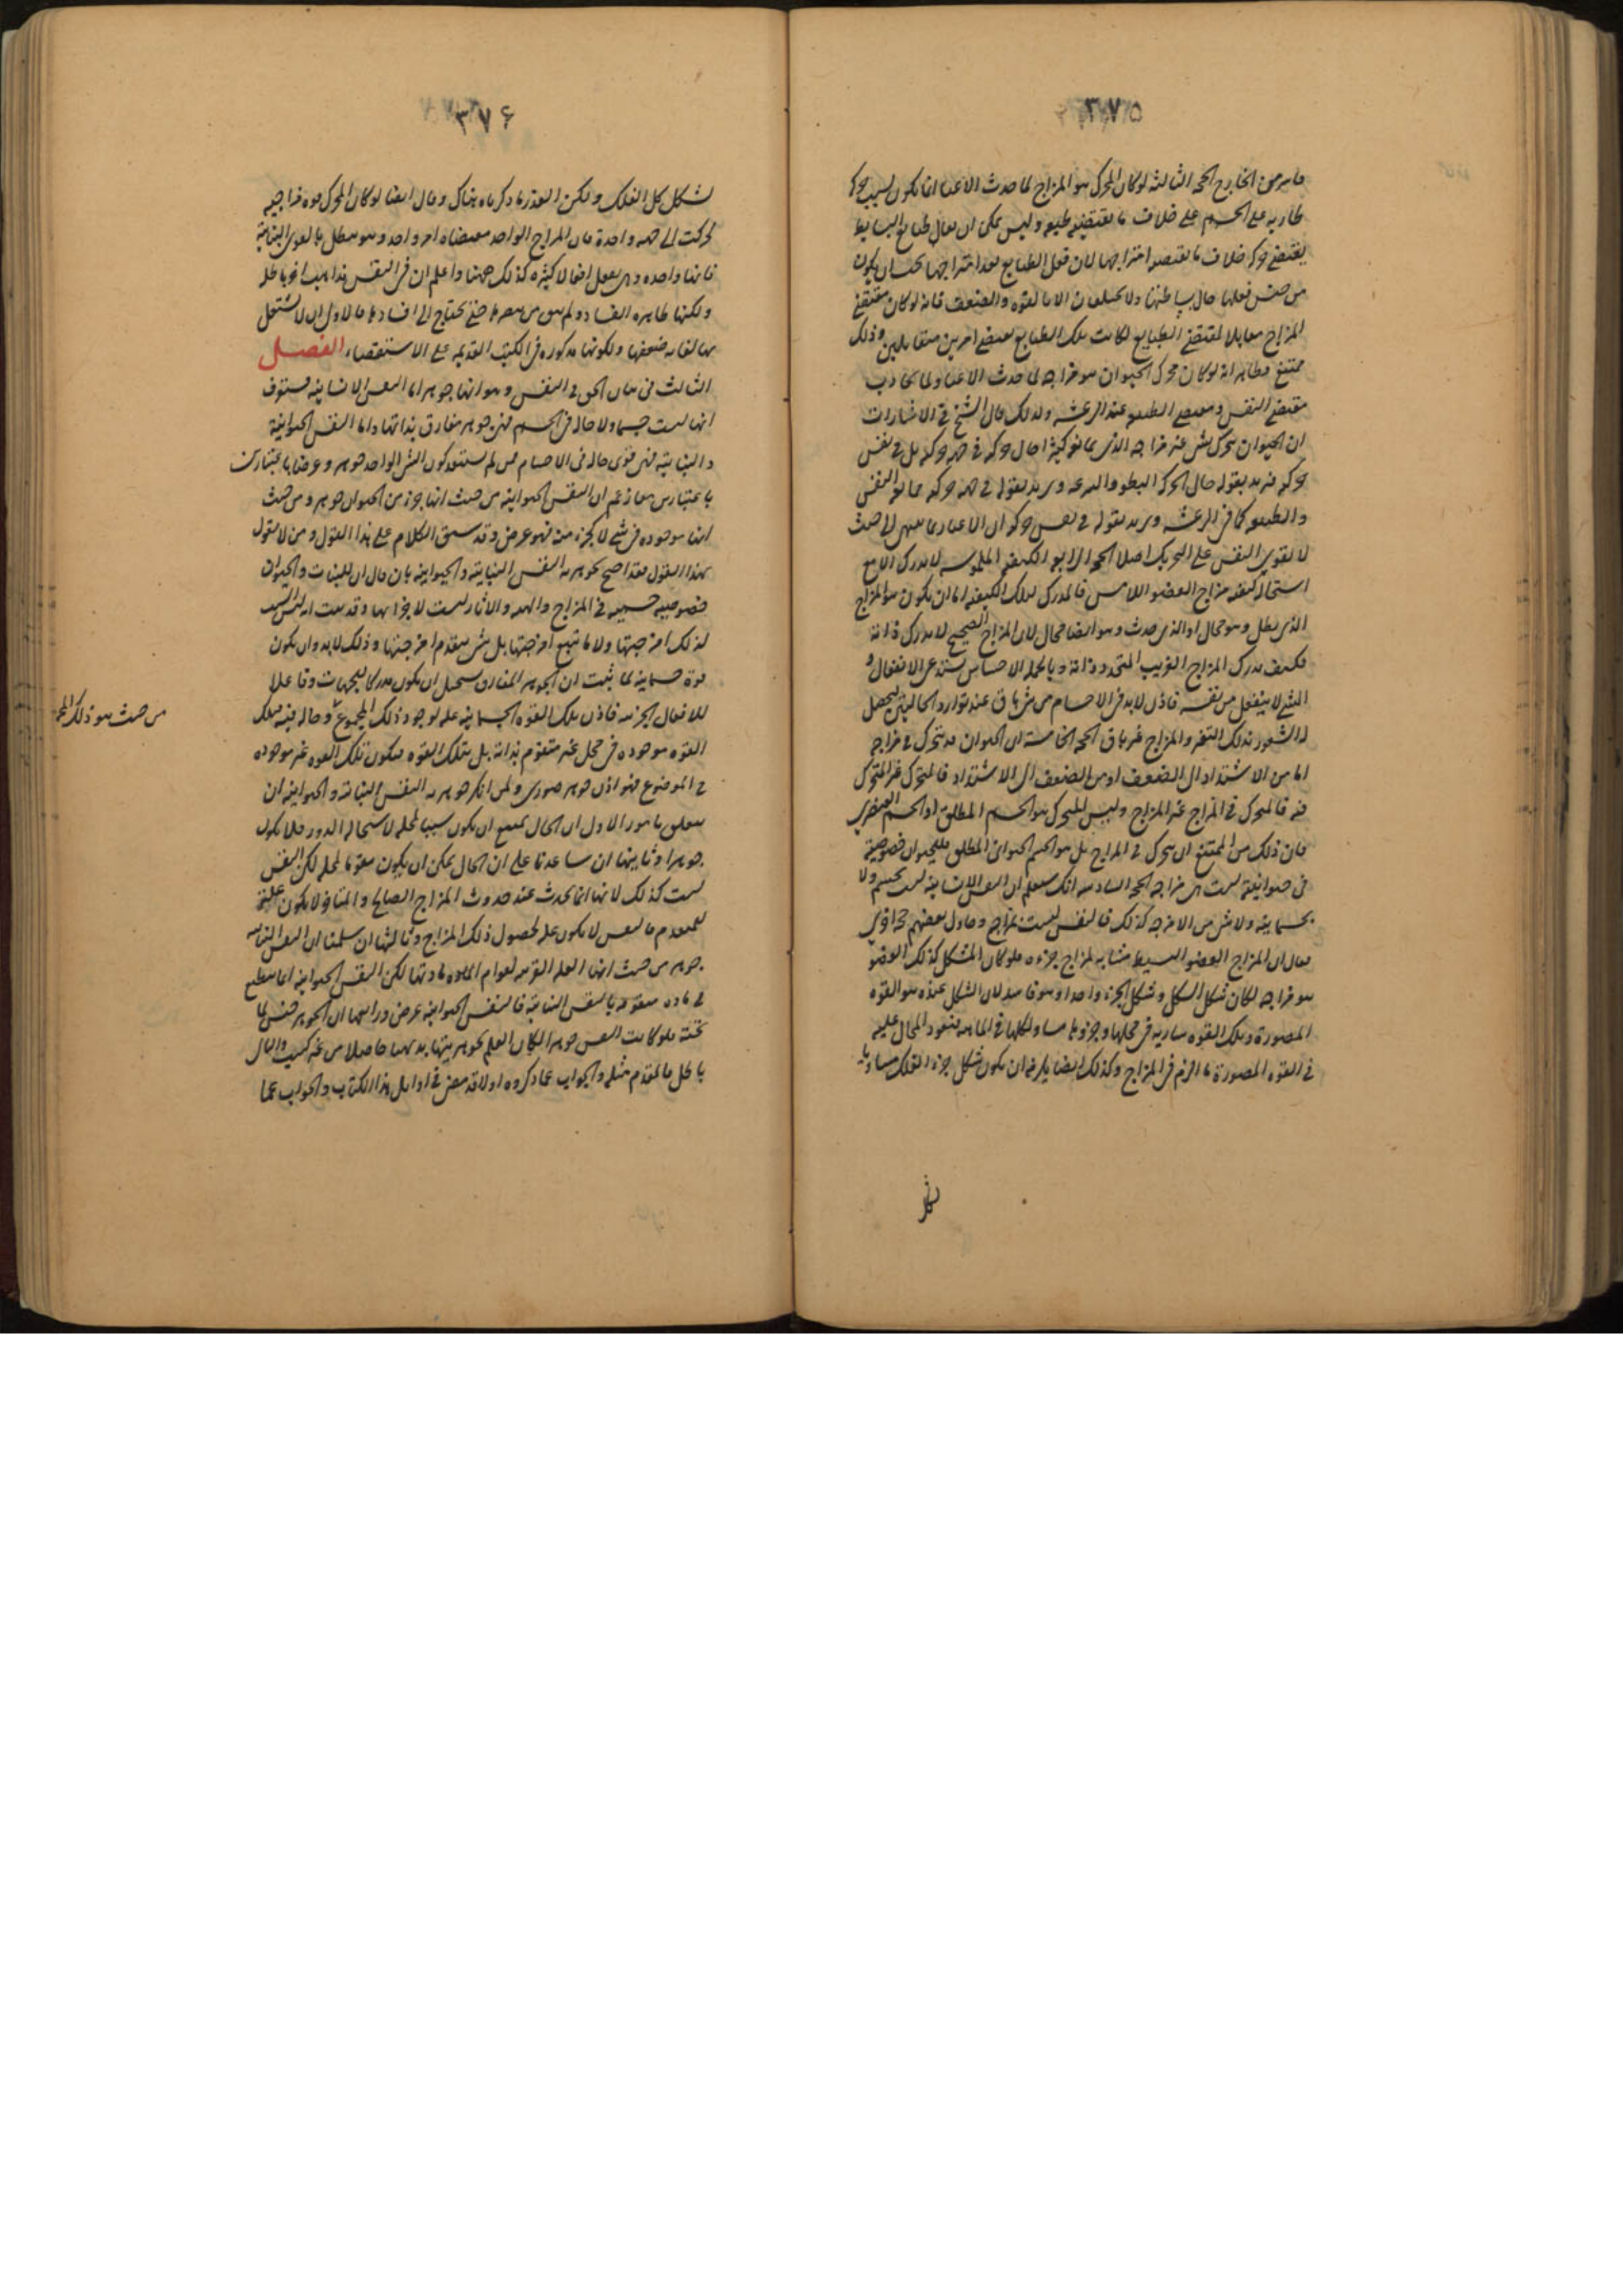 ٣٧٥
ما يرمى الخارج الحجه الثالثه لوكان المحرك هو المزاج لما حدث الاعيا انما يكون لسبب حركه
طاريه على الجسم على خلاف ما يقتضيه طبيعه وليس يمكن ان يقال طبايع البسايط
يقتضى حركه خلاف ما يقتضيه امتزاجها لان فعل الطبايع بعد امتزاجها يجب ان يكون
من جنس فعلها حال بساطتها ولا يختلفان الا بالقوه والضعف فانه لوكان مقتضى
المزاج مقابلا لمقتضى الطبايع لكانت تلك الطبايع تقتضى امرين متقابلين وذلك
ممتنع فظاهر انه لوكان محرك الحيوان هو مزاجه لما حدث الاعيا ولما تجاذب
مقتضى النفس ومقتضى الطبيعه عند الرعشه ولذلك قال الشيخ فى الاشارات
ان الحيوان يتحرك بشى غير مزاجه الذى يمانعه كثيرا حال حركته فى جهه حركته بل فى نفس
حركته فيريد بقوله حال الحركه البطو والسرعه ويريد بقوله فى جهه حركته ممانعه النفس
والطبيعه كما فى الرعشه ويريد بقوله فى نفس حركته ان الاعيا ربما ينتهى الى حيث
لا يقوى النفس على التحريك اصلا الحجه الرابعه الكيفيه الملموسه لا تدرك الا مع
استحاله كيفيه مزاج العضو اللامس فالمدرك لتلك الكيفيه اما ان يكون هو المزاج
الذى بطل وهو محال او الذى حدث وهو ايضا محال لان المزاج الصحيح لا يدرك ذاته
فكيف يدرك المزاج الغريب المتجدد ذاته وبالجمله الاحساس يستدعى الانفعال و
الشى لا ينفعل من نفسه فاذن لابد فى الاجسام من شى باق عند توارد الحالتين ليحصل
له الشعور بذلك التغير والمزاج غير باق الحجه الخامسه ان الحيوان قد يتحرك فى مزاجه
اما من الاشتداد الى الضعف او من الضعف الى الاشتداد فالمتحرك غير المتحرك
فيه فالمتحرك فى المزاج غير المزاج وليس المتحرك هو الجسم المطلق او الجسم العنصرى
فان ذلك من الممتنع ان يتحرك فى المزاج بل هو الجسم الحيوانى المطلق فللحيوان خصوصيه
فى حيوانيته ليست هى مزاجه الحجه السادسه انك ستعلم ان النفس الانسانيه ليست بجسم ولا
بجسمانيه ولا شى من الامزجه كذلك فالنفس ليست بمزاج وحاول بعضهم حجه اخرى
فقال ان المزاج العضو البسيط مشابه لمزاج جزءه فلو كان المشكل لذلك العضو
هو مزاجه لكان شكل الكل وشكل الجزء واحدا وهو فاسد لان الشكل عنده هو القوه
المصورة وتلك القوه ساريه فى محلها وجزوها مساو لكلها فى الماهيه فيعود المحال عليه
فى القوه المصورة ما الزم فى المزاج وكذلك ايضا يلزم ان يكون شكل جزء الفلك مساويا
٣٧٦
لشكل كل الفلك ولكن العذر ما ذكرناه هناك وقال ايضا لوكان المحرك قوه مزاجيه
لحركت الى جهه واحدة فان المزاج الواحد مقتضاه امر واحد وهو يبطل بالقوى النباتية
فانها واحده وهى تفعل افعالا كثيره كذلك ههنا واعلم ان فى النفس مذاهب اخرى باطله
ولكنها ظاهره الفساد ولم يبق من ينصرها حتى يحتاج الى افسادها فالاولى ان لا نشتغل
بها لغايه ضعفها ولكونها مذكوره فى الكتب القديمه على الاستقصاء الفصل
الثالث فى بيان الحق فى النفس وهو انها جوهر اما النفس الانسانيه فستعرف
انها ليست جسما ولا حاله فى الجسم فهى جوهر مفارق بذاتها واما النفس الحيوانية
والنباتيه فهى قوى حاله فى الاجسام فمن لم يستبعد كون الشى الواحد جوهرا وعرضا باعتبارين
باعتبارين معا زعم ان النفس الحيوانيه من حيث انها جزء من الحيوان جوهر ومن حيث
انها موجوده فى شى لا كجزء منه فهو عرض وقد سبق الكلام على هذا القول ومن لا يقول
بهذا القول فقد احتج بجوهريه النفس النباتيه والحيوانيه بان قال ان للنبات والحيوان
خصوصيه جسميه فى المزاج والهيئه والاثار ليست لاجزائها وقد بينت انه ليس السبب
لذلك امزجتها ولا ما يتبع امزجتها بل شى يتقدم امزجتها وذلك لابد وان يكون
قوة جسمانيه لما ثبت ان الجوهر المفارق يستحيل ان يكون مدركا للجهات وفاعلا
للافعال الجزئيه فاذن تلك القوه الجسمانيه عله لوجود ذلك المجموع وحاله فيه فتلك
من حيث هو ذلك المجموع
القوه موجوده فى محل غير متقوم بذاته بل بتلك القوه فتكون تلك القوه غير موجوده
فى الموضوع فهو اذن جوهر صورى ولمن انكر جوهريه النفس النباتيه والحيوانيه ان
يتعلق بامور الاول ان الحال يمتنع ان يكون سببا لمحله لاستحاله الدور فلا يكون
جوهرا وثانيها ان ساعدنا على ان الحال يمكن ان يكون مقوما لمحله لكن النفس
ليست كذلك لانها انما تحدث عند حدوث المزاج الصالح والمتاخر لا يكون عله
للمتقدم فالنفس لا يكون عله لحصول ذلك المزاج وثالثها ان سلمنا ان النفس النباتيه
جوهر من حيث انها العله القريبه لقوام الماده مادتها لكن النفس الحيوانيه انما تنطبع
فى ماده متقومه بالنفس النباتيه فالنفس الحيوانيه عرض ورابعها ان الجوهر جنس لما
تحته فلو كانت النفس جوهرا لكان العلم بجوهريتها بديهيا حاصلا من غير كسب والتالى
باطل فالمقدم مثله والجواب عما ذكروه اولا قد مضى فى اوايل هذا الكتاب والجواب عما